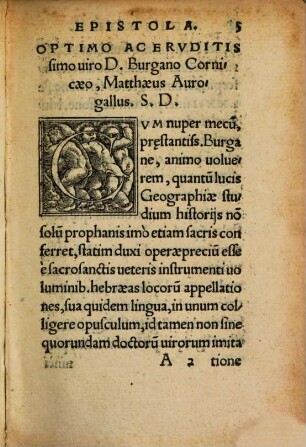 EPISTOLA. 5
OPTIMO AC ERVDITIS
simo uiro D. Burgano Corni
cæo, Matthæus Auro-
gallus. S. D.
CVM nuper mecũ,
prestantiss. Burga
ne, animo uolue-
rem, quantũ lucis
Geographiæ stu
dium historijs nõ
solũ prophanis imò etiam sacris con
ferret, statim duxi operæpreciũ esse
è sacrosanctis ueteris instrumenti uo
luminib. hebræas locorũ appellatio
nes, sua quidem lingua, in unum col
ligere opusculum, id tamen non sine
quorundam doctorũ uirorum imita
A 2 tione